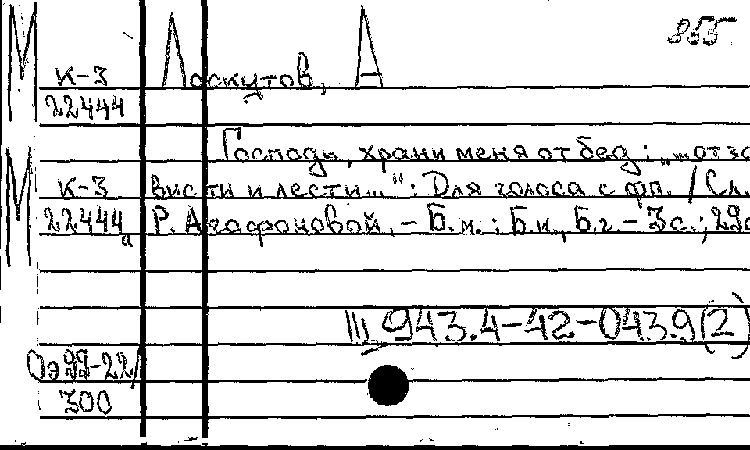 М
855
К-3 Лоскутов, А
22444
Господь, храни меня от бед: „...от за
М К-3 висти и лести..." : Для голоса с фп. / Сл.
22444а Р. Агафоновой. - Б.м. : Б.и., Б.г. - 3с.; 29с
III 943.4-42-043.9(2)
Оэ 99-22/
300